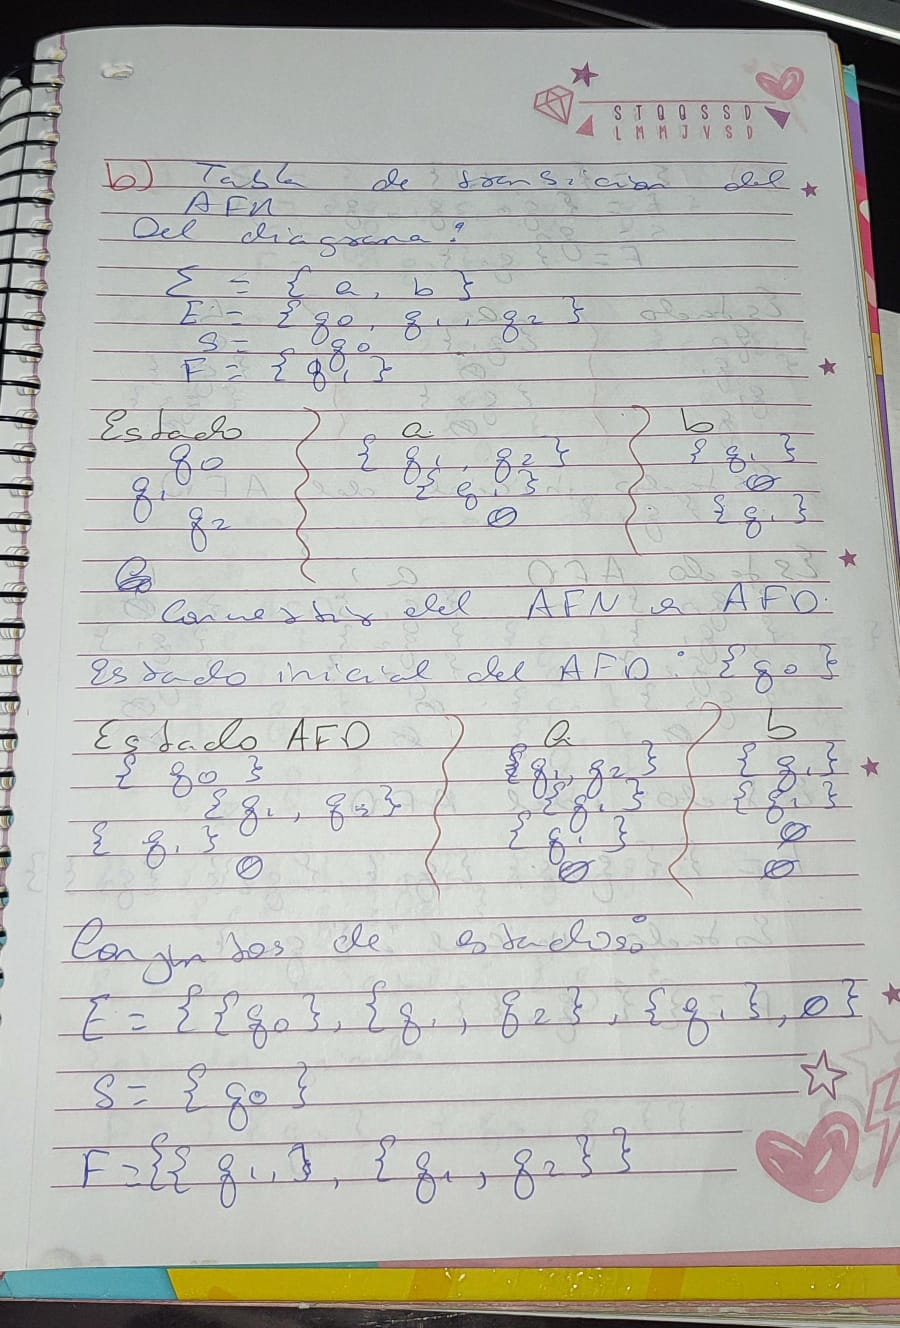 S T Q Q S S D
L M M J V S D
b) Tabla de transicion del
AFN
Del diagrama:
Σ = { a, b }
E = { q0, q1, q2 }
S = q0
F = { q1 }
Estado a b
q0 { q1, q2 } { q1 }
q1 { q1 } ∅
q2 ∅ { q1 }
Convertir del AFN a AFD.
Estado inicial del AFD: { q0 }
Estado AFD a b
{ q0 } { q1, q2 } { q1 }
{ q1, q2 } { q1 } { q1 }
{ q1 } { q1 } ∅
∅ ∅ ∅
Conjuntos de estados:
E = { { q0 }, { q1, q2 }, { q1 }, ∅ }
S = { q0 }
F = { { q1, }, { q1, q2 } }